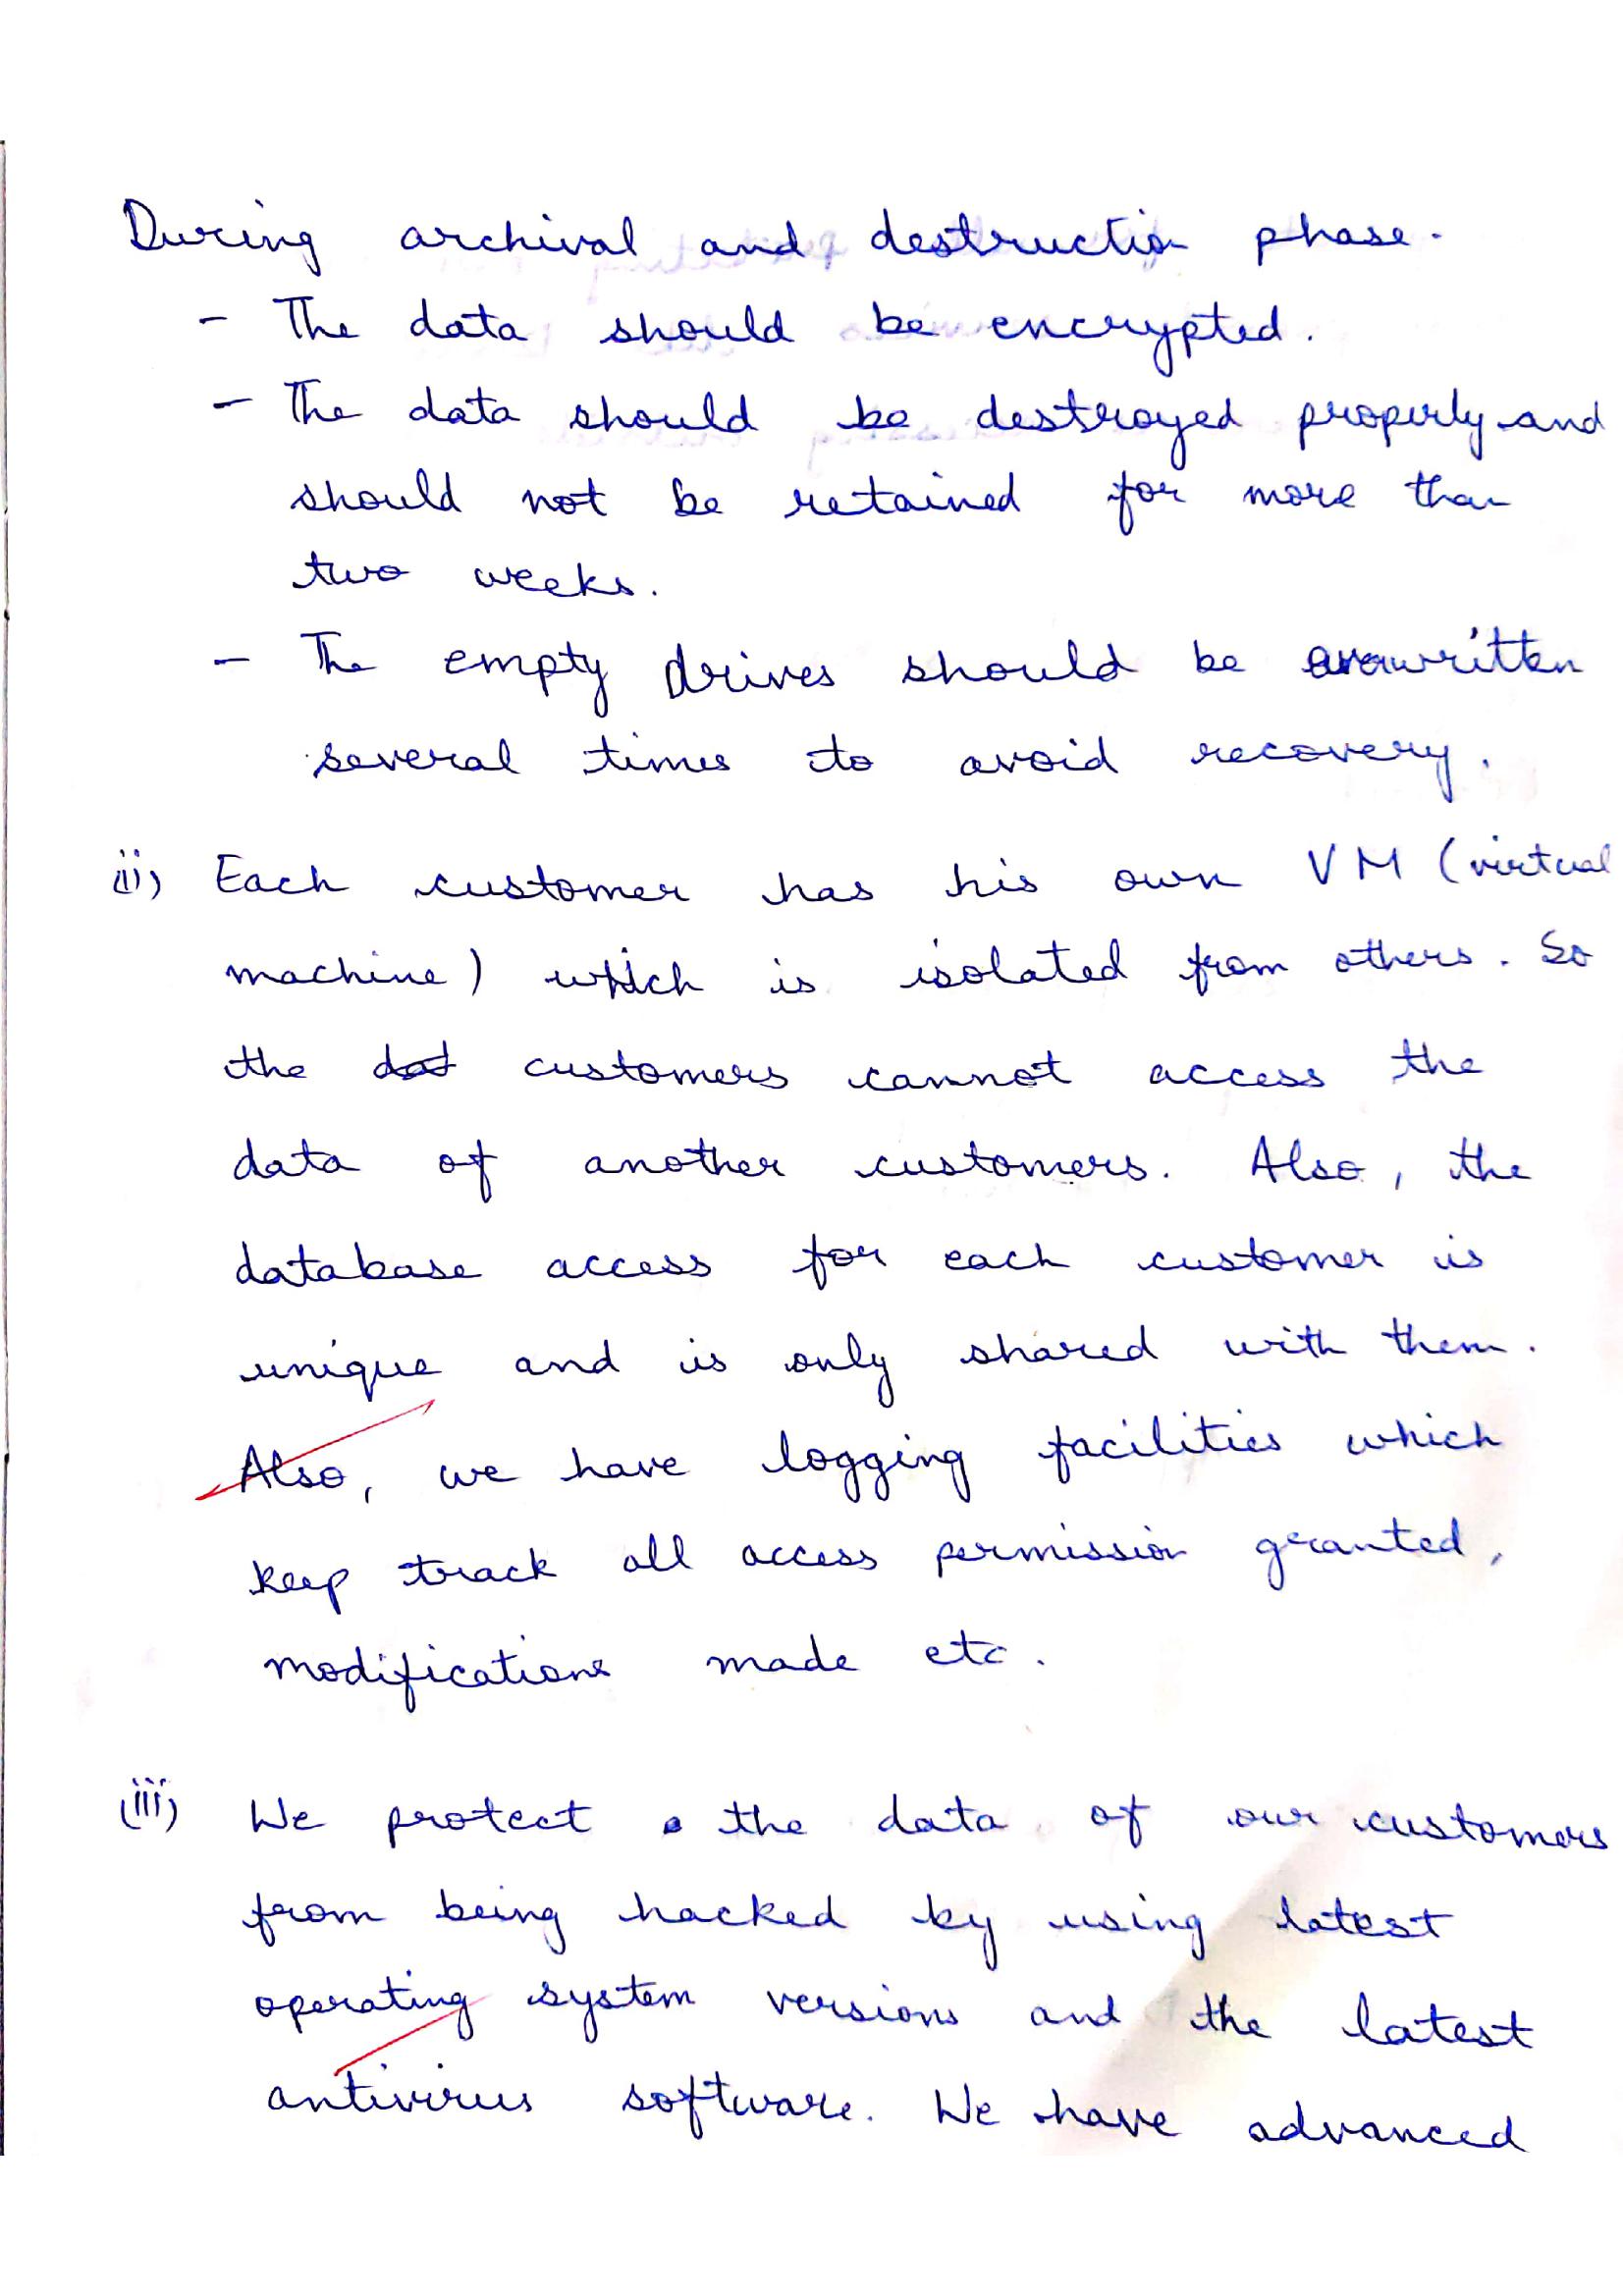 During archival and destruction phase.
- The data should be encrypted.
- The data should be destroyed properly and
should not be retained for more than
two weeks.
- The empty drives should be overwritten
several times to avoid recovery.
(ii) Each customer has his own VM (virtual
machine) which is isolated from others. So
the customers cannot access the
data of another customers. Also, the
database access for each customer is
unique and is only shared with them.
Also, we have logging facilities which
keep track all access permission granted,
modifications made etc.
(iii) We protect the data of our customers
from being hacked by using latest
operating system versions and the latest
antivirus software. We have advanced